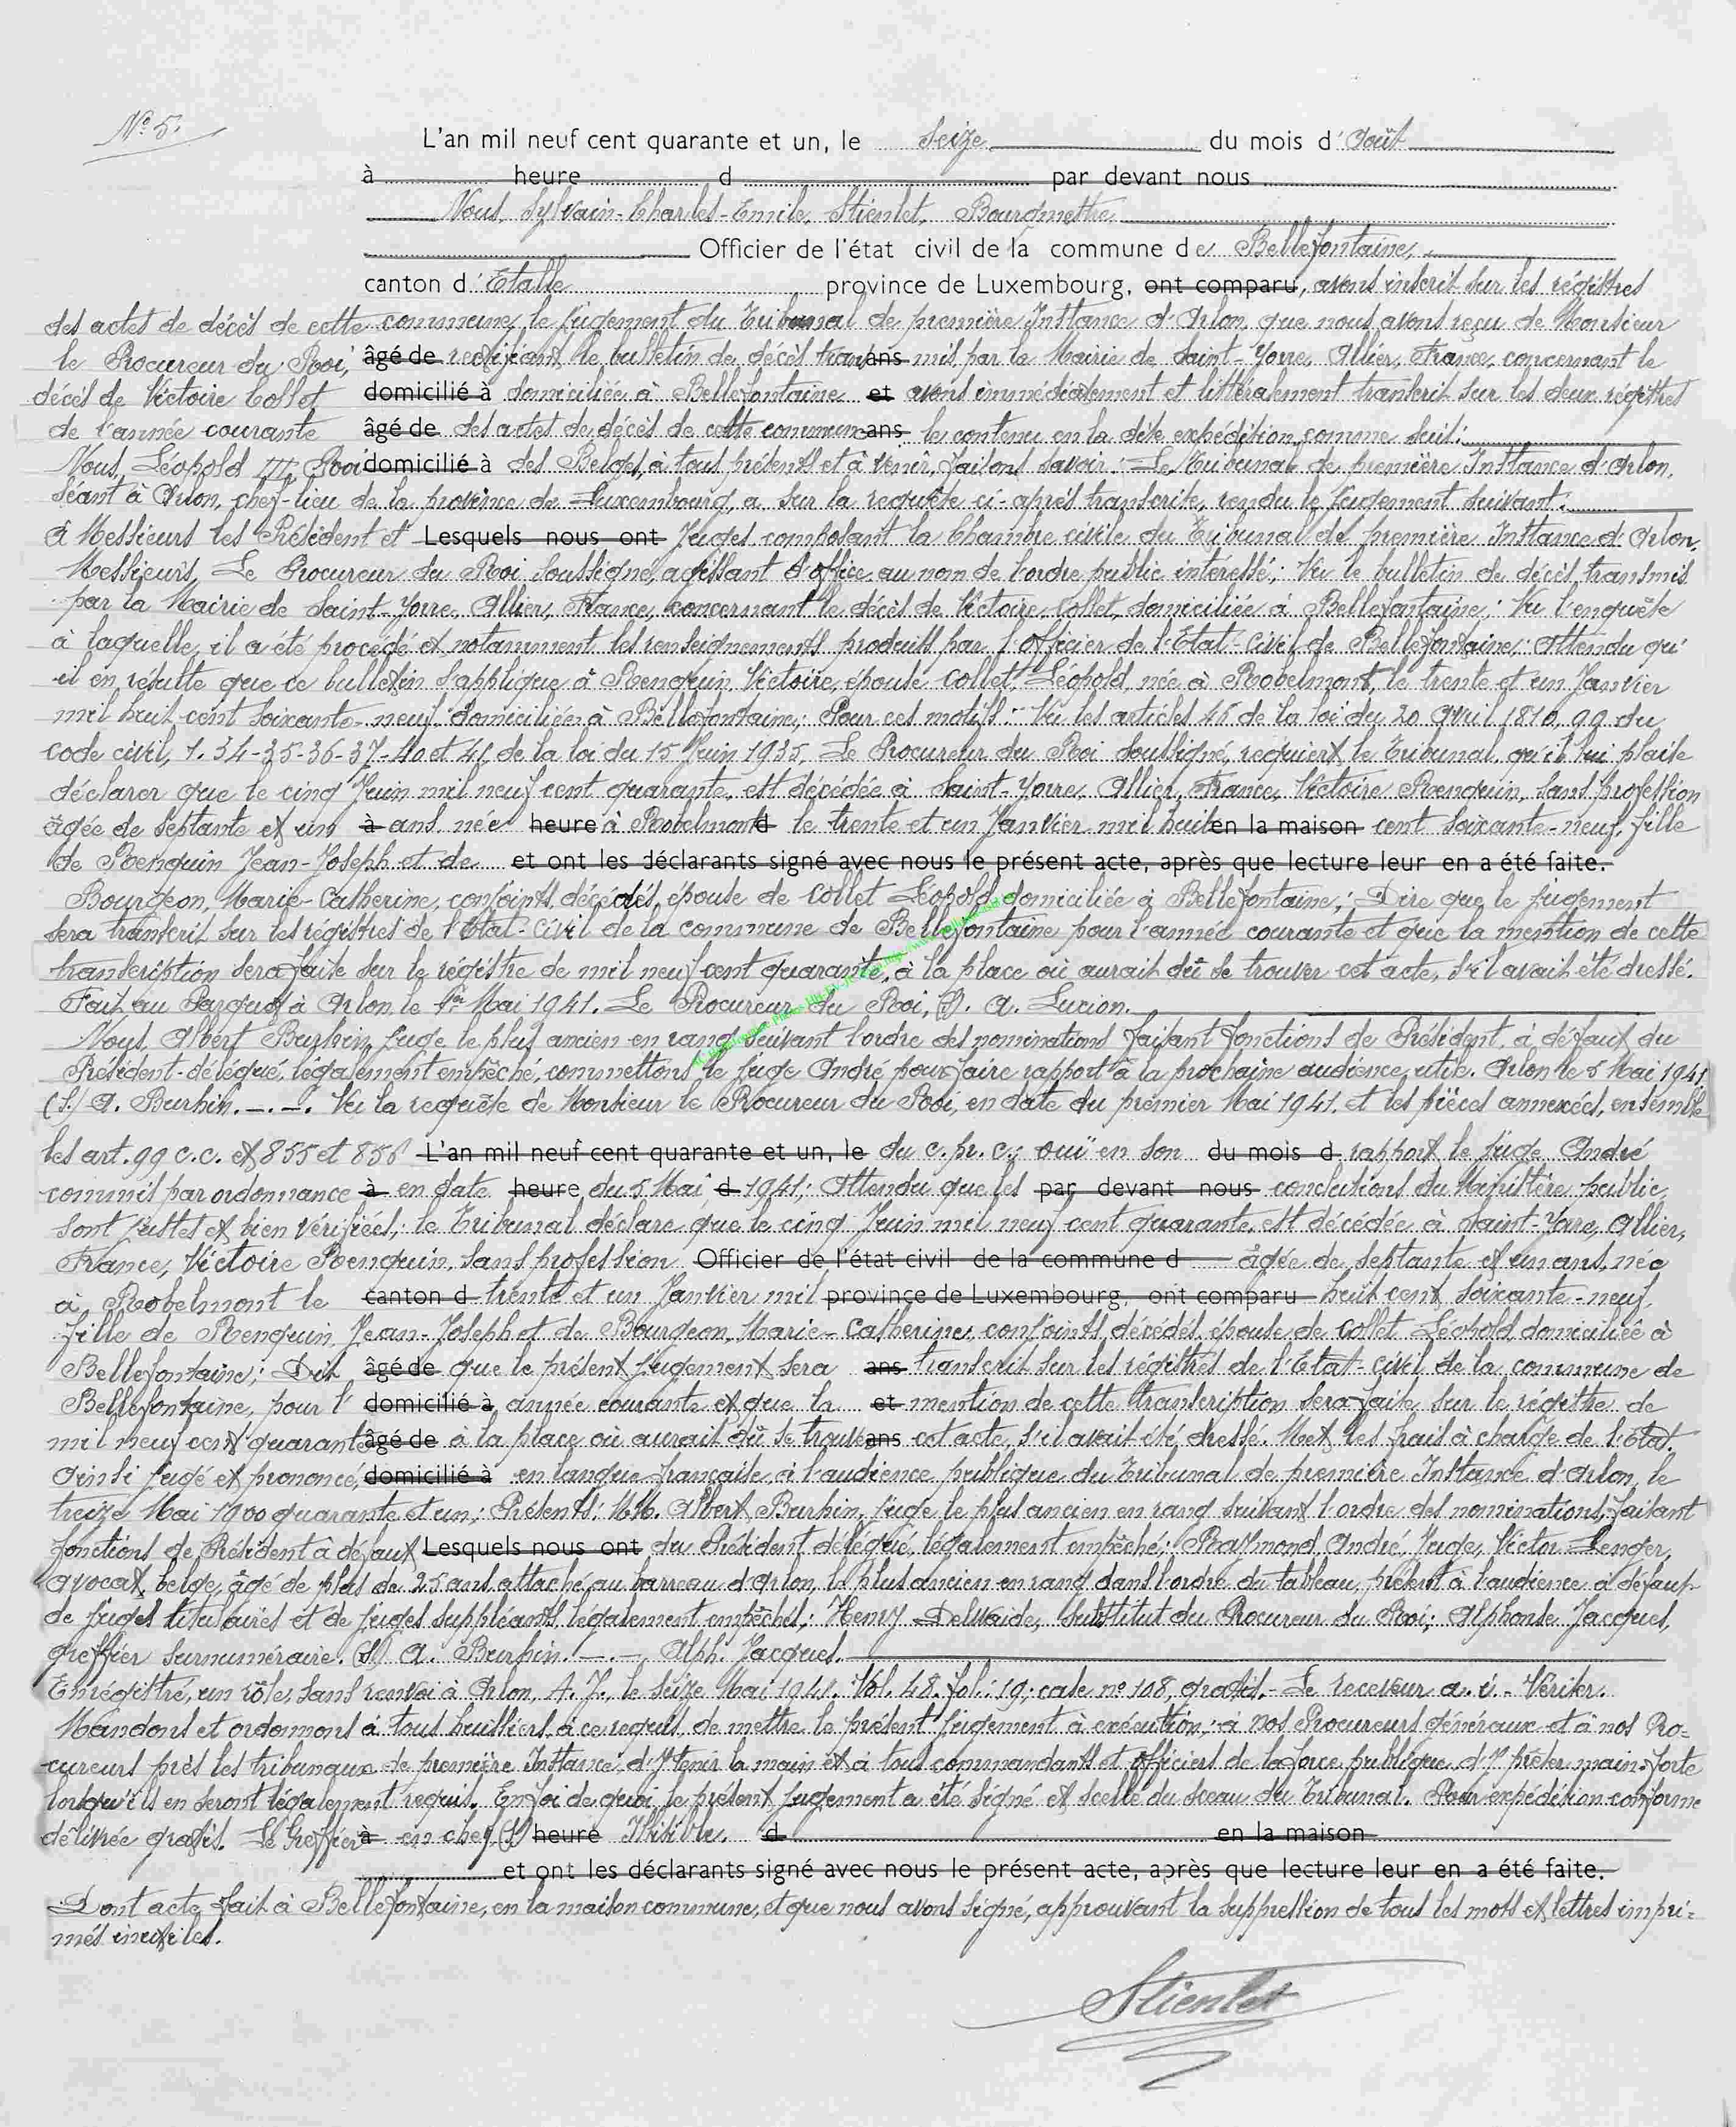 N° 5.
L'an mil neuf cent quarante et un, le seize du mois d'Août
à heure d par devant nous
Nous, Sylvain-Charles-Emile Stienlet, Bourgmestre
Officier de l'état civil de la commune de Bellefontaine,
canton d'Etalle province de Luxembourg, ont comparu, avons inscrit sur les régistres
des actes de décès de cette commune, le jugement du Tribunal de première Instance d'Arlon, que nous avons reçu de Monsieur
le Procureur du Roi, âgé de rectifiant le bulletin de décès trans ans mis par la Mairie de Saint-Yorre, Allier, France, concernant le
décès de Victoire Collet domicilié à domiciliée à Bellefontaine et avons immédiatement et littéralement transcrit sur les deux régistres
de l'année courante âgé de des actes de décès de cette commune ans le contenu en la dite expédition comme suit:
Nous, Léopold III, Roi domicilié à des Belges, à tous présents et à venir, faisons savoir: Le Tribunal de première Instance d'Arlon,
séant à Arlon, chef-lieu de la province de Luxembourg, a sur la requête ci-après transcrite, rendu le jugement suivant:
A Messieurs les Président et Lesquels nous ont Juges composant la Chambre civile du Tribunal de première Instance d'Arlon,
Messieurs, Le Procureur du Roi soussigné, agissant d'office au nom de l'ordre public intéressé; Vu le bulletin de décès transmis
par la Mairie de Saint-Yorre, Allier, France, concernant le décès de Victoire Collet, domiciliée à Bellefontaine; Vu l'enquête
à laquelle, il a été procédé et notamment les renseignements produits par l'officier de l'Etat-Civil de Bellefontaine; Attendu qu'
il en résulte que ce bulletin s'applique à Renquin Victoire, épouse Collet Léopold, née à Robelmont, le trente et un Janvier
mil huit cent soixante-neuf, domiciliée à Bellefontaine; Pour ces motifs: Vu les articles 46 de la loi du 20 Avril 1810, 99 du
code civil, 1. 34-35-36-37-40 et 41 de la loi du 15 Juin 1935, Le Procureur du Roi soussigné, requiert le Tribunal qu'il lui plaise
déclarer que le cinq Juin mil neuf cent quarante, est décédée à Saint-Yorre, Allier, France, Victoire Renquin, sans profession
âgée de septante et un à ans née heure à Robelmont d le trente et un Janvier mil huit en la maison cent soixante-neuf, fille
de Renquin Jean-Joseph et de et ont les déclarants signé avec nous le présent acte, après que lecture leur en a été faite.
Bourgeon, Marie-Catherine, conjoints décédés, épouse de Collet Léopold domiciliée à Bellefontaine; Dire que le jugement
sera transcrit sur les régistres de l'Etat-Civil de la commune de Bellefontaine pour l'année courante et que la mention de cette
transcription sera faite sur le régistre de mil neuf cent quarante, à la place où aurait dû se trouver cet acte, s'il avait été dressé.
Fait au Parquet à Arlon, le 1er Mai 1941. Le Procureur du Roi, (S). A. Lucion.
Nous, Albert Burhin, Juge le plus ancien en rang suivant l'ordre des nominations faisant fonctions de Président, à défaut du
Président-délégué, légalement empêché, commettons le juge André pour faire rapport à la prochaine audience utile. Arlon le 5 Mai 1941.
(S.) A. Burhin. -.-. Vu la requête de Monsieur le Procureur du Roi, en date du premier Mai 1941, et les pièces annexées, ensemble
les art. 99 c.c. et 855 et 856 L'an mil neuf cent quarante et un, le du c. pr. c.; ouï en son du mois d rapport le juge André
commis par ordonnance à en date heure du 5 Mai d 1941; Attendu que les par devant nous conclusions du Ministère public
sont justes et bien vérifiées; le Tribunal déclare que le cinq Juin mil neuf cent quarante, est décédée à Saint-Yorre, Allier,
France, Victoire Renquin, sans profession Officier de l'état civil de la commune d âgée de septante et un ans, née
à Robelmont le canton d trente et un Janvier mil province de Luxembourg, ont comparu huit cent soixante-neuf,
fille de Renquin Jean-Joseph et de Bourgeon, Marie-Catherine, conjoints décédés, épouse de Collet Léopold domiciliée à
Bellefontaine; Dit âgé de que le présent jugement sera ans transcrit sur les régistres de l'Etat-civil de la commune de
Bellefontaine, pour l' domicilié à année courante et que la et mention de cette transcription sera faite sur le régistre de
mil neuf cent quarante âgé de à la place où aurait dû se trouver ans cet acte, s'il avait été dressé. Met les frais à charge de l'Etat.
Ainsi jugé et prononcé, domicilié à en langue française, à l'audience publique du Tribunal de première Instance d'Arlon, le
treize Mai 1900 quarante et un; Présents: MM. Albert Burhin, juge le plus ancien en rang suivant l'ordre des nominations, faisant
fonctions de Président à défaut Lesquels nous ont du Président délégué, légalement empêché; Raymond André, Juge, Victor Lenger,
avocat belge, âgé de plus de 25 ans, attaché au barreau d'Arlon, le plus ancien en rang dans l'ordre du tableau, présent à l'audience à défaut
de juges titulaires et de juges suppléants, légalement empêchés; Henry Delvaide, Substitut du Procureur du Roi; Alphonse Jacques,
greffier surnuméraire. (S) A. Burhin. -.-. Alph. Jacques.
Enrégistré, un rôle, sans renvoi à Arlon, A. J., le seize Mai 1941. Vol. 48. fol.: 19; case n° 108, gratis.- Le receveur a. i.-
Mandons et ordonnons à tous huissiers, à ce requis, de mettre le présent jugement à exécution; à nos Procureurs généraux et à nos Pro=
-cureurs près les tribunaux de première Instance, d'y tenir la main et à tous commandants et officiers de la force publique, d'y prêter main-forte
lorsqu'ils en seront légalement requis. En foi de quoi, le présent jugement a été signé et scellé du sceau du Tribunal. Pour expédition conforme
délivrée gratis. Le Greffier à en chef (S) heure d en la maison
et ont les déclarants signé avec nous le présent acte, après que lecture leur en a été faite.
Dont acte, fait à Bellefontaine, en la maison commune, et que nous avons signé, approuvant la suppression de tous les mots et lettres impri=
més inutiles.
Stienlet